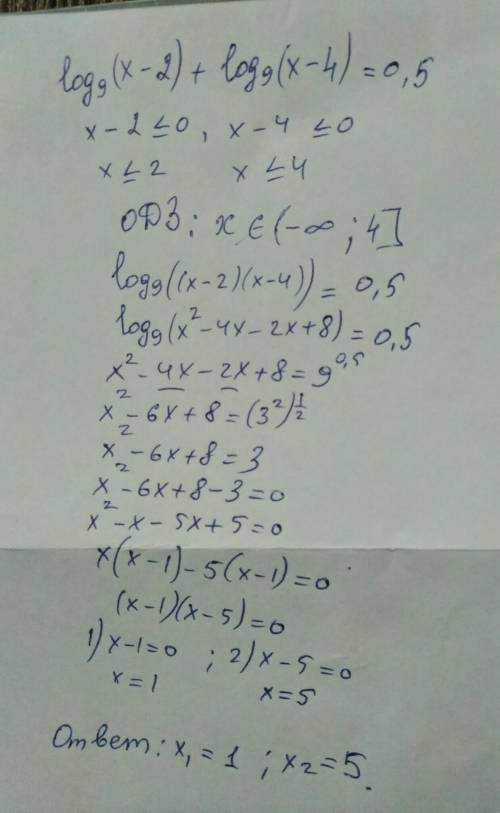 log₉(x-2) + log₉(x-4) = 0,5
x-2 ≤ 0, x-4 ≤ 0
x ≤ 2 x ≤ 4
ОДЗ: x ∈ (-∞; 4]
log₉((x-2)(x-4)) = 0,5
log₉(x²-4x-2x+8) = 0,5
x²-4x-2x+8 = 9^0,5
x²-6x+8 = (3²)^½
x²-6x+8 = 3
x²-6x+8-3 = 0
x²-x-5x+5 = 0
x(x-1)-5(x-1) = 0
(x-1)(x-5) = 0
1) x-1=0 ; 2) x-5=0
x=1 x=5
Ответ: x₁ = 1 ; x₂ = 5.